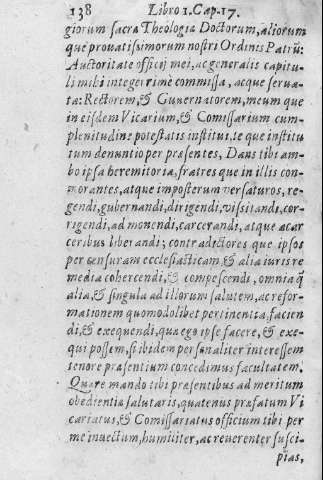 138 Libro 1. Cap. 17.
giorum sacræ Theologiæ Doctorum, aliorum
que prouatissimorum nostri Ordinis Patrũ:
Auctoritate officij mei, ac generalis capitu-
li mihi integerrime commissa, acque serua-
ta: Rectorem, & Gunernatorem, meum que
in eisdem Vicarium, & Comissarium cum
plenitudine potestatis institui, te que institu
tum denuntio per præsentes, Dans tibi am-
bo ipsa heremitoria, fratres que in illis con-
morantes, atque imposterum versaturos, re-
gendi, gubernandi, dirigendi, vissitandi, cor-
rigendi, ad monendi, carcerandi, atque a car
ceribus liberandi; contradictores que ipsos
per censuram ecclesiasticam, & alia iuris re
media cohercendi, & compescendi, omnia q̃
alia, & singula ad illorum salutem, ac refor-
mationem quomodolibet pertinentia, facien
di, & exequendi, quæ ego ipse facere, & exe-
qui possem, si ibidem personaliter interessem
tenore præsentium concedimus facultatem.
Quare mando tibi præsentibus ad meritum
obedientiæ salutaris, quatenus præfatum Vi
cariatus, & Comissariatus officium tibi per
me inuectum, humiliter, ac reuerenter susci-
pias,